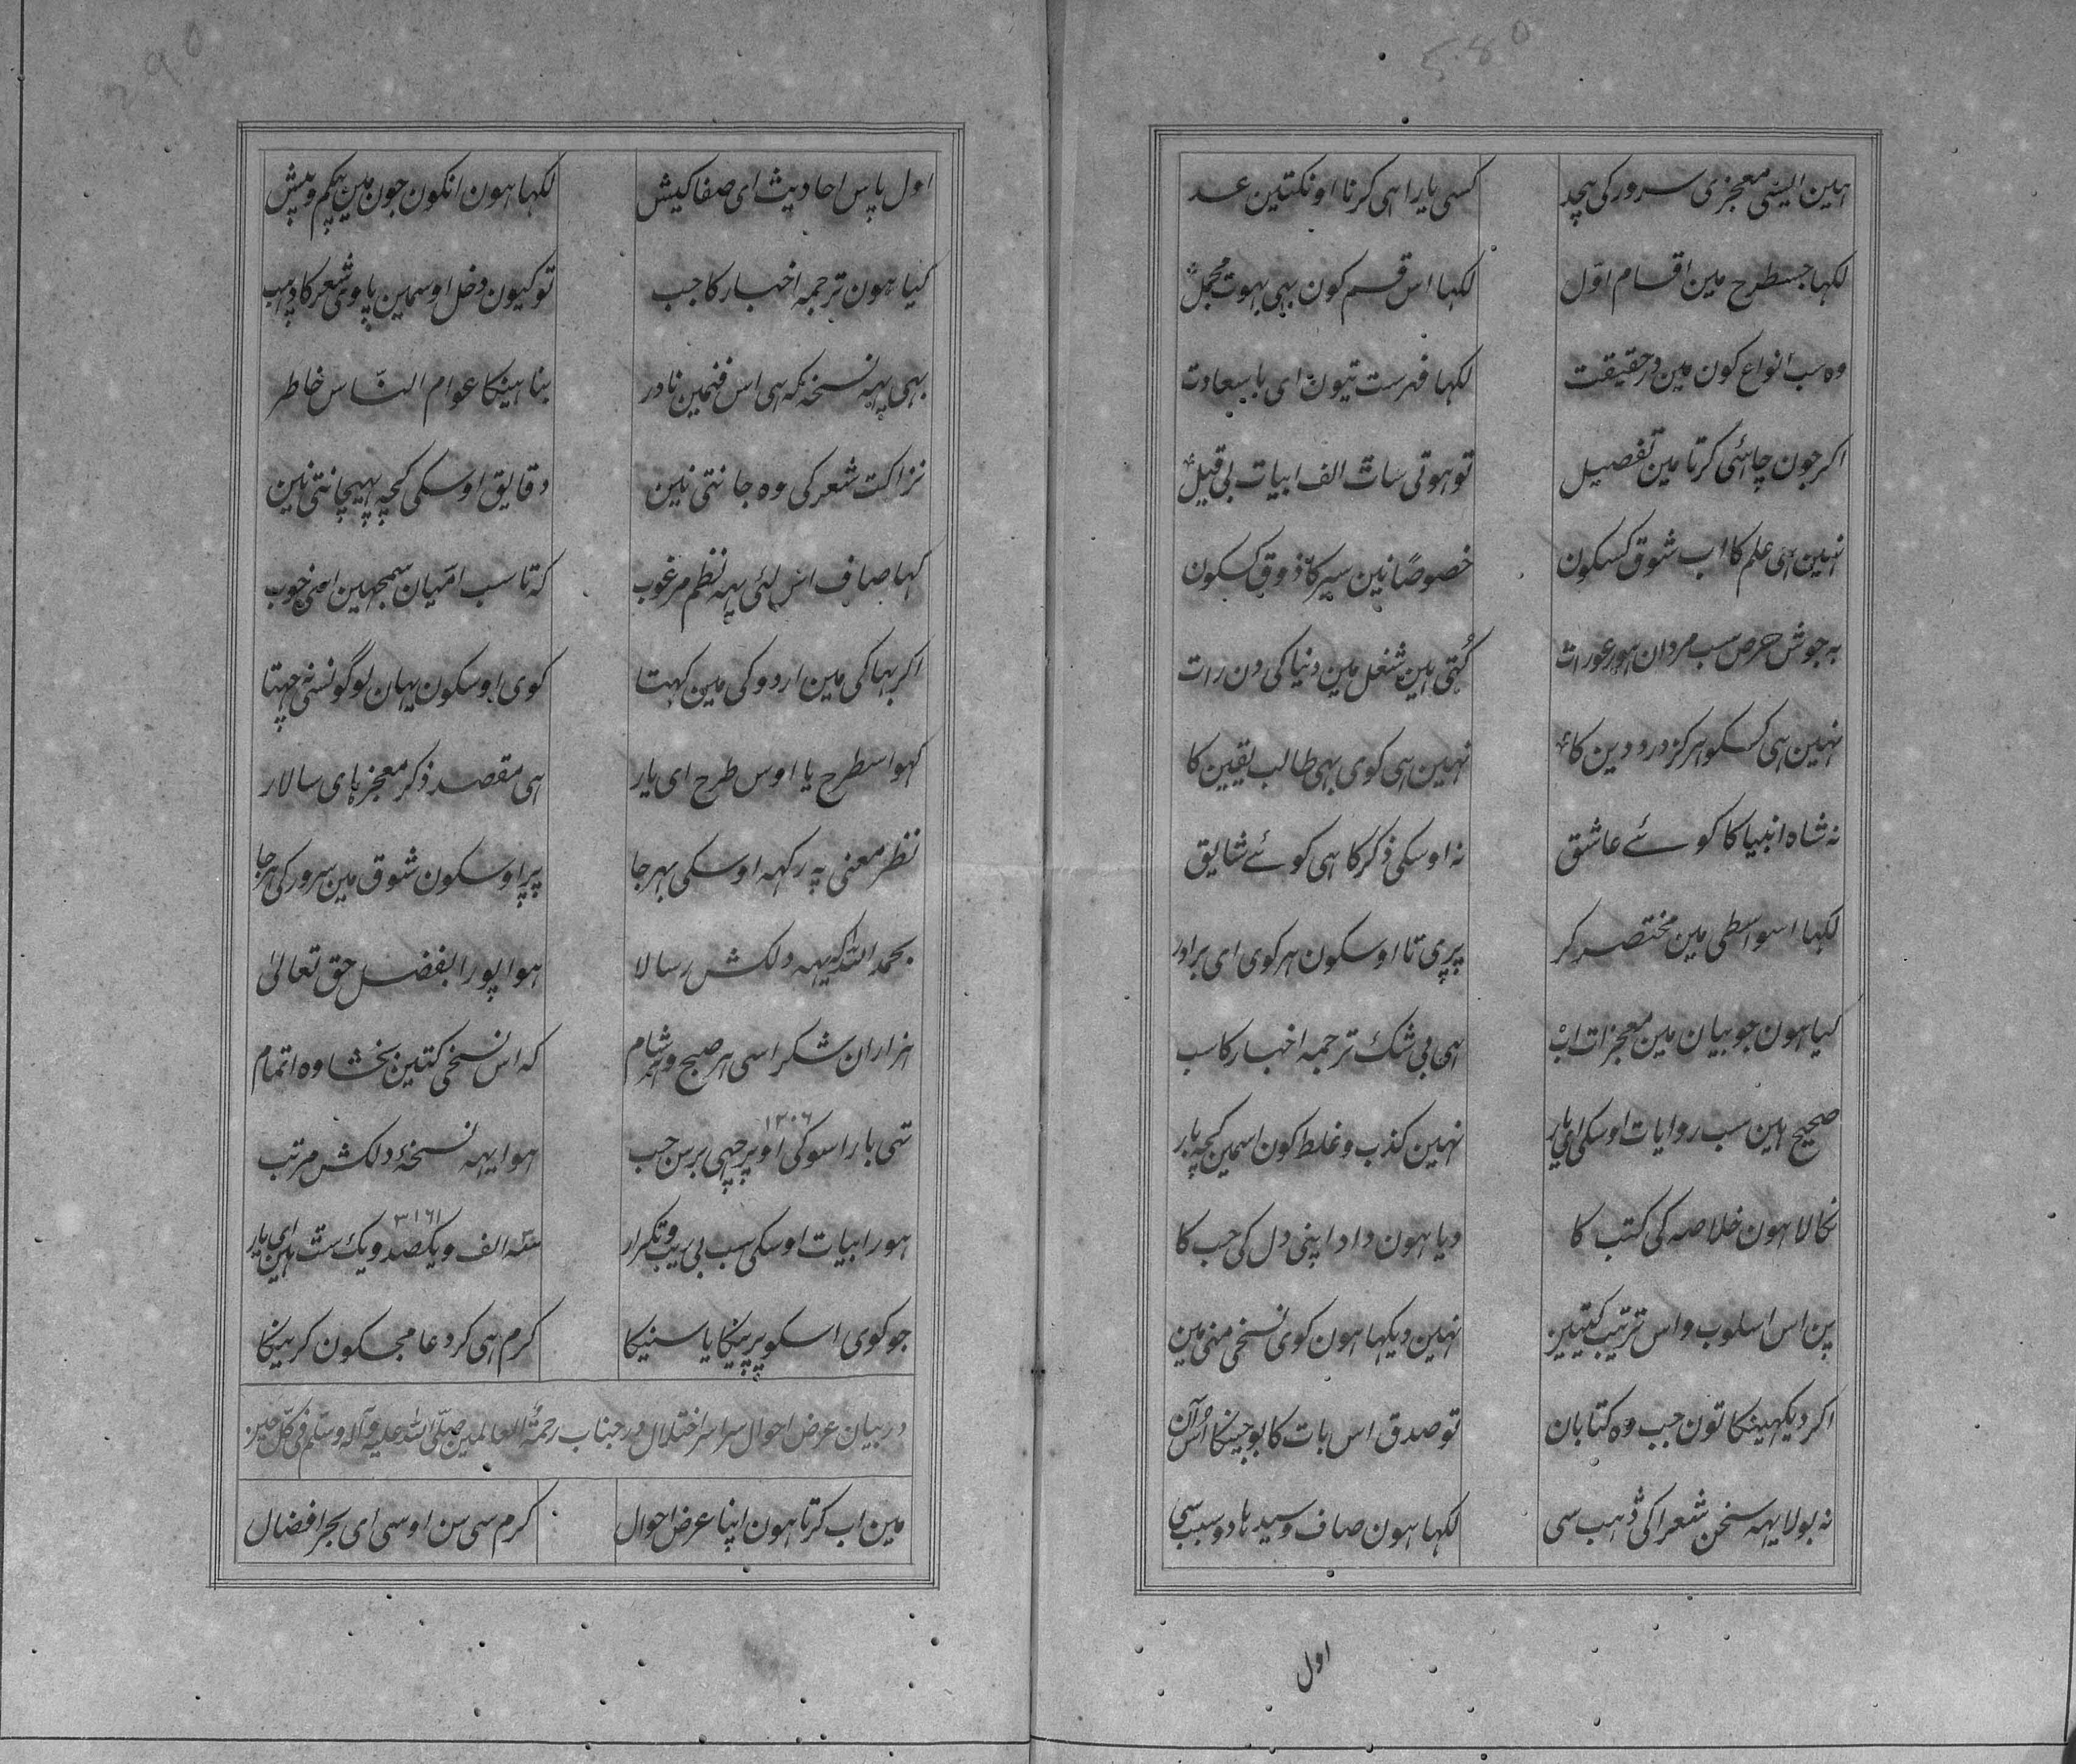 580
ہین ایسی معجزی سرور کی بیحد
کسی یارا ہی کرنا اونکتین عد
لکہا جسطرح مین اقسام اوّل
لکہا اس قسم کون بہی بہوت مجمل
وہ سب انواع کون مین درحقیقت
لکہا فہرست تیون ای باسعادت
اکر جون چاہئی کرتا مین تفصیل
تو ہوتی سات الف ابیات بی قیل
نہین ہی علم کا اب شوق کسکون
خصوصًا نین سیر کا ذوق کسکون
بہ جوش حرص سب مردان ہور عورات
کُتی ہین شغل مین دنیا کی دن رات
نہین ہی کسکو ہرکز درد دین کا
نہین ہی کوی بہی طالب یقین کا
نہ شاہ انبیا کا کوئے عاشق
نہ اوسکی ذکر کا ہی کوئے شایق
لکہا اسواسطی مین مختصر کر
پرپی تا اوسکون ہر کوی ای برادر
کیا ہون جو بیان مین معجزات اب
ہی بی شک ترجمہ اخبار کا سب
صحیح ہین سب روایات اوسکی ای یار
نہین کذب و غلط کون اسمین کچہ بار
نکالا ہون خلاصہ کی کتب کا
دیا ہون داد اپنی دل کی حب کا
پن اس اسلوب و اس ترتیب کیتین
نہین دیکہا ہون کوی نسخی منی مین
اکر دیکہینکا تون جب وہ کتابان
تو صدق اس بات کا بوجینکا اُس آن
نہ بولا یہہ سخن شعرا کی ڈہب سی
لکہا ہون صاف و سیدہا دو سبب سی
اول
290
اول پاس احادیث ای صفا کیش
لکہا ہون انکون جون مین بیکم و بیش
کیا ہون ترجمہ اخبار کا جب
تو کیون دخل اوسمین پاوی شعر کا ڈہب
بہی یہہ نسخہ کہ ہی اس فنمین نادر
بنا ہینکا عوام النّاس خاطر
نزاکت شعر کی وہ جانتی نین
دقایق اوسکی کچہ پہچانتی نین
کہا صاف اس لئی یہہ نظم مرغوب
کہ تا سب امّیان سمجہین اسی خوب
اکر بہاکی مین اردو کی مین کہتا
کوی اوسکون یہان لوگونسی نہ چہتا
کہو اسطرح یا اوس طرح ای یار
ہی مقصد ذکر معجزہای سالار
نظر معنی پہ رکہہ اوسکی بہرجا
پرپ اوسکون شوق مین سرور کی ہرجا
بحمد اللہ کہ یہہ دلکش رسالا
ہوا پورا بفضل حق تعالیٰ
ہزاران شکر اسی ہر صبح و ہر شام
کہ اس نسخی کتین بخشا وہ اتمام
۱۲۰۶
تہی بارا سو کی اوپر چہی برس جب
ہوا یہہ نسخۂ دلکش مرتب
۳۱۶۱
ہور ابیات اوسکی سب بی ریب و تکرار
سہ الف و یکصد و یک شت ہین ای یار
جو کوی اسکو پرپینکا یا سنیکا
کرم ہی کر دعا مجکون کرینکا
در بیان عرض احوال سراسر اختلال در جناب رحمۃ العالمین صلّی اللہ علیہ و آلہ وسلّم فی کلّ حین
مین اب کرتا ہون اپنا عرض احوال
کرم سی سن اوسی ای بحر افضال